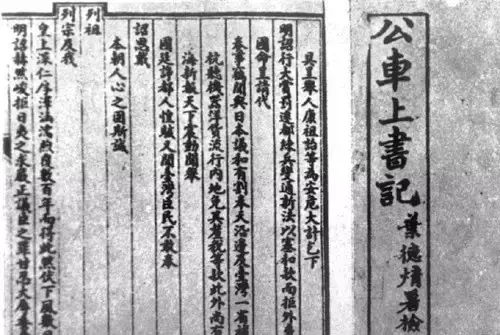 公車上書記
葉德署檢
具呈舉人康祖詒等為安危大計乞下
明詔行大賞罰遷都練兵變通新法以塞和款而拒外
國命呈請代
奏事竊聞與日本議和有割奉天沿邊及臺灣一省
抗聽機器洋貨流行內地免其釐稅等款此外尚有
海新報天下震動聞舉
國廷諍都人惶駭又聞臺灣臣民不敢奉
詔思戴
本朝人心之固斯誠
列祖
列宗及我
皇上深仁厚澤涵濡煦數百年而得此然伏下風數
明詔赫然峻拒日夷之求嚴正議臣之罪甘忍大辱委